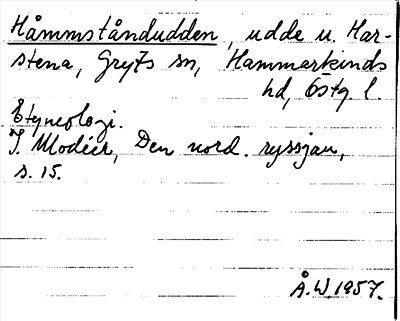 Håmmståndudden, udde u. Har-
stena, Gryts sn, Hammarkinds
hd, Östg. l.
Etymologi.
I. Modéer, Den nord. ryssjan,
s. 15.
Å.W.1957.